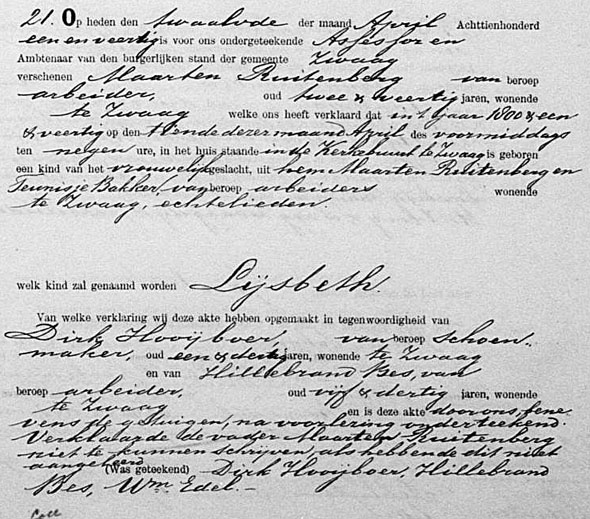 21. Op heden den twaalfde der maand April Achttienhonderd
een en veertig is voor ons ondergeteekende Assessor en
Ambtenaar van den burgerlijken stand der gemeente Zwaag
verschenen Maarten Ruitenberg van beroep
arbeider, oud twee & veertig jaren, wonende
te Zwaag welke ons heeft verklaard dat in 't jaar 1800 & een
& veertig op den tiende dezer maand April des voormiddags
ten negen ure, in het huis staande in de Kerkebuurt te Zwaag is geboren
een kind van het vrouwelijk geslacht, uit hem Maarten Ruitenberg en
Teunisje Bakker, van beroep arbeiders wonende
te Zwaag, echtelieden.
welk kind zal genaamd worden Lijsbeth.
Van welke verklaring wij deze akte hebben opgemaakt in tegenwoordigheid van
Dirk Hooijboer, van beroep schoen-
maker, oud een & dertig jaren, wonende te Zwaag
en van Hillebrand Bes, van
beroep arbeider, oud vijf & dertig jaren, wonende
te Zwaag en is deze akte door ons, bene-
vens de getuigen, na voorlezing onderteekend.
Verklaarde de vader Maarten Ruitenberg
niet te kunnen schrijven, als hebbende dit niet
aangeleerd (Was geteekend) Dirk Hooijboer, Hillebrand
Bes, Wm Edel.-
Coll